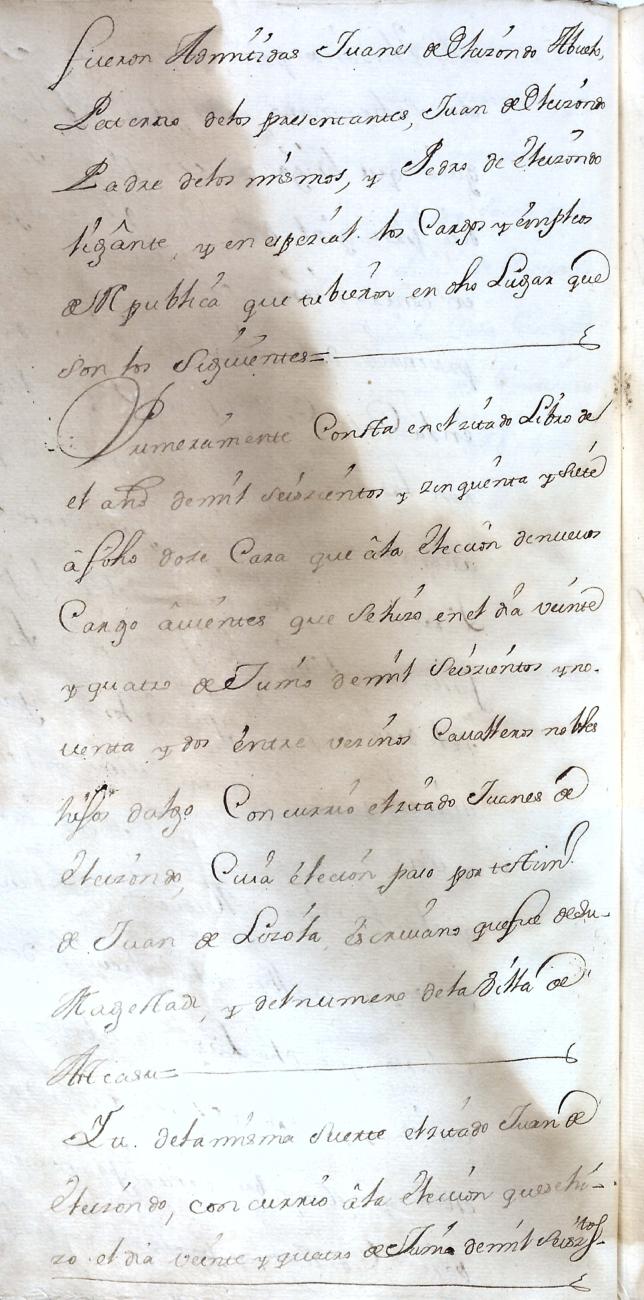 fueron Admitidas Juanes de Elizóndo Abuelo,
Paterno delos presentantes, Juan de Elizóndo
Padre delos mismos, y Pedro de Elizóndo
litigânte, y en espezial los Cargos y émpleos
de Rpublicâ que tubierón en dho Lugar que
son los siguientes=
Primeramente Consta enel zitado Libro de
el año demil seiszientos y zinquênta y siete
â folio doze Cara que âla êlección denuevos
Cargo âvientes que sehizo enel día veinte
y quatro de Junio demil Seiszientos y no-
venta y dos éntre vezinos Cavalleros nobles
hijos dalgo Concurrio elzitado Juanes de
Elizóndo, Cuia élección paso por testim.º
de Juan de Lozóla, éscrivano quefue desu
Magestad, y delnumero dela Villa de
=
Yt. dela misma suerte elzitado Juan de
Elizóndo, concurrió âla élección quesehi-
zo el dia veinte y quatro de Junio demil Seiszᵗᵒˢ